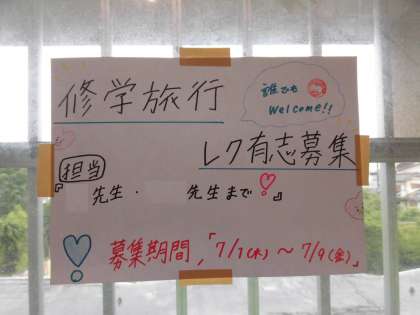 修学旅行
誰でも
Welcome!!
レク有志募集
担当
『 先生・ 先生まで!』
募集期間,「7/7(木)〜7/9(金)」